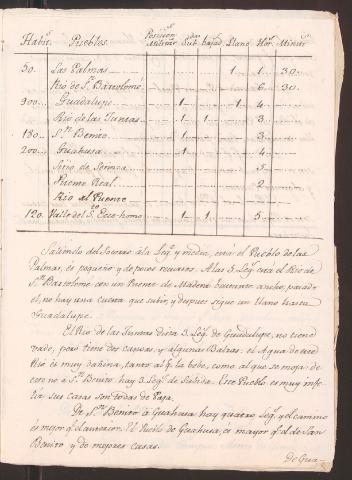 Habit.s Pueblos Posicion.s Militar.s Sub.da bajad.a Llano Hor.s Minut.s
50. Las Palmas 1 1 30
Rio de S.n Bartolomé 6 30
300 Guadalupe 1 1 4
Rio de las Juntas 1 1 3
180 S.n Benito 1 3
200 Guahusa 1 4
Sitio de 5
Puente Real 2
Rio el Puente
120. Valle del S.to Ecce-homo 1 1 5
Saliendo del Socorro á la Leg.a y media, está el Pueblo de las
Palmas, es pequeño y de pocos recursos. A las 5 Leg.s está el Rio de
S.n Bartolomé con un Puente de Madera bastante ancho, para
el, no hay una cuesta que subir, y despues sigue un llano hasta
Guadalupe.
El Rio de las Juntas dista 3 Leg.s de Guadalupe, no tiene
vado, pero tiene dos canoas, y algunas Balsas: el Agua de este
Rio es muy dañina, tanto al q.e la bebe, como al que se moja: de
este no á S.n Benito, hay 3 Leg.s de Subida. Este Pueblo es muy infe
sus casas son todas de Paja.
De S.n Benito á Guahusa hay quatro Leg.s y el camino
es mejor q.e el anterior. El Pueblo de Guahusa, es mayor q.e el de San
Benito y de mejores casas.
De Gua-